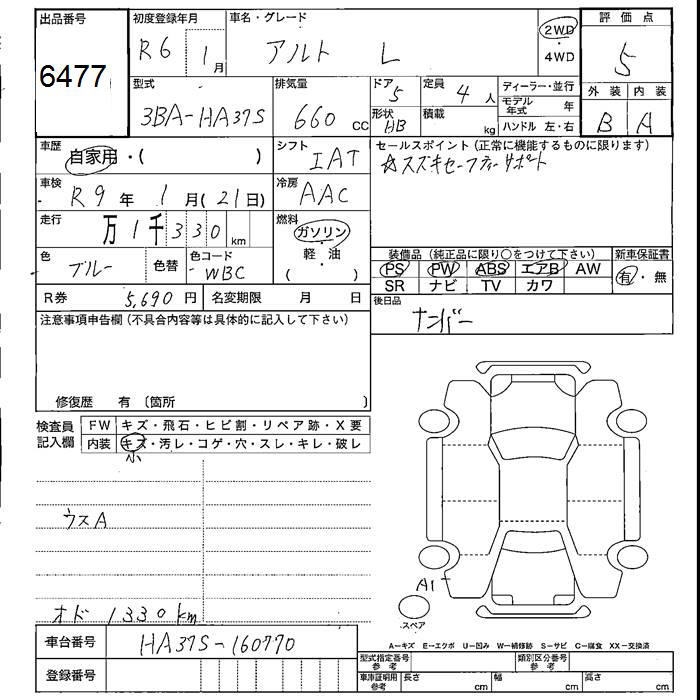 出品番号 初度登録年月 車名・グレード 評価点
6477 R6 1月 アルト L 2WD・4WD 5
型式 排気量 ドア 定員 ディーラー・並行 外装 内装
3BA-HA37S 660cc 5 4人 モデル年式 年 B A
形状 HB 積載 kg ハンドル 左・右
車歴 自家用・( ) シフト IAT セールスポイント(正常に機能するものに限ります)
☆スズキセーフティーサポート
車検 R9年 1月(21日) 冷房 AAC
走行 万1千330km 燃料 ガソリン・軽・油 ( )
色 ブルー 色替 色コード WBC 装備品(純正品に限り○をつけて下さい) 新車保証書
PS PW ABS エアB AW 有・無
SR ナビ TV カワ
R券 5,690円 名変期限 月 日 後日品
ナンバー
注意事項申告欄(不具合内容等は具体的に記入して下さい)
修復歴 有〔箇所 〕
検査員記入欄 FW キズ・飛石・ヒビ割・リペア跡・X要
内装 キズ・汚レ・コゲ・穴・スレ・キレ・破レ
小
ウスA
A1
スペア
オド 1330km
A-キズ E-エクボ U-凹み W-補修跡 S-サビ C-腐食 XX-交換済
車台番号 HA37S-160770
型式指定番号 参考 類別区分番号 参考
登録番号 車庫証明用 参考 長さ cm 幅 cm 高さ cm